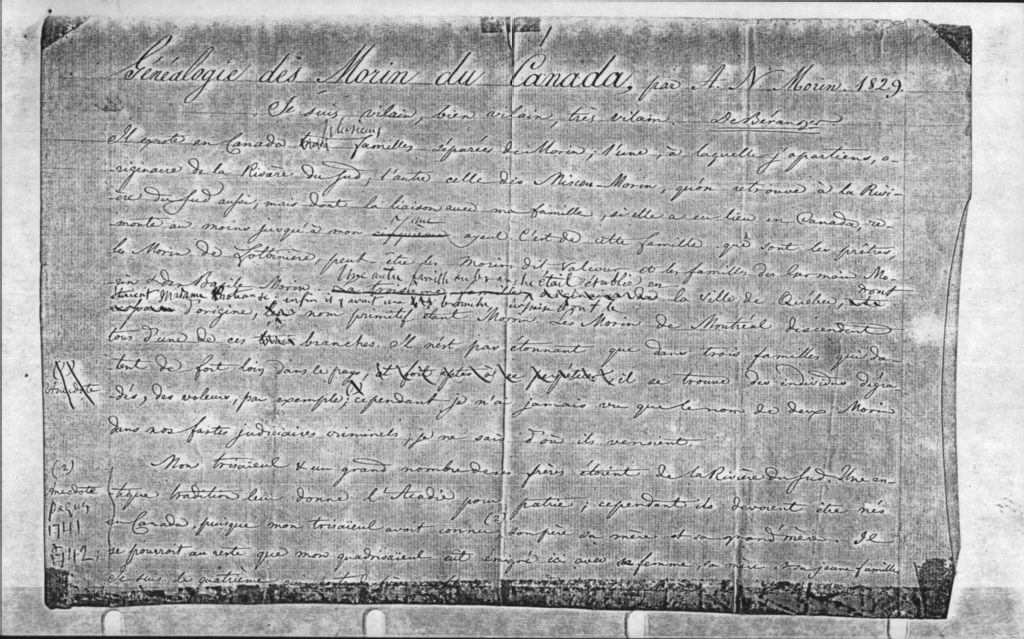 Généalogie des Morin du Canada, par A. N. Morin. 1829.
Je suis vilain, bien vilain, très vilain. De Béranger
plusieurs
Il existe en Canada trois familles séparées de Morin; l'une, à laquelle j'apartiens, o-
riginaire de la Rivière du Sud; l'autre celle des Miscou-Morin, qu'on retrouve à la Rivi-
ère du Sud aussi, mais dont la liaison avec ma famille, si elle a eu lieu en Canada, re-
monte au moins jusqu'à mon 7me ayeul C'est de cette famille que sont les prêtres
les Morin de Lotbinière, peut être les Morin dit Valcour et les familles des Germain Mo-
rin & des Basile Morin. Une autre famille était établie en la ville de Québec, dont
étaient Madame enfin il y avait une branche
d'origine, le nom primitif étant Morin. Les Morin de Montréal descendent
tous d'une de ces trois branches. Il n'est pas étonnant que dans trois familles qui da-
tent de fort loin dans le pays, il se trouve des individus dégra-
Anecdote
dés, des voleurs, par exemple; cependant je n'ai jamais vu que le nom de deux Morin
dans nos fastes judiciaires criminels; je ne sais d'où ils venoient
Mon trisaieul & un grand nombre de ses frères étoient de la Rivière du Sud. Une an-
(2)
Anecdote
tique tradition leur donne l'Acadie pour patrie; cependant ils devoient être nés
pages
1741
(2)
en Canada, puisque mon trisaieul avoit connu son père sa mère et sa grand'mère. Il
1742
se pourroit au reste que mon quadrisaieul eut émigré ici avec sa femme, sa mère, son jeune famille
Je suis le quatrième